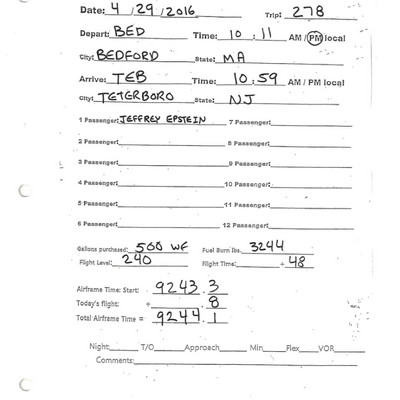 Date: 4 / 29 / 2016 Trip: 278
Depart: BED Time: 10 : 11 AM / PM local
City: BEDFORD State: MA
Arrive: TEB Time: 10 : 59 AM / PM local
City: TETERBORO State: NJ
1 Passenger: JEFFREY EPSTEIN 7 Passenger:
2 Passenger: 8 Passenger:
3 Passenger: 9 Passenger:
4 Passenger: 10 Passenger:
5 Passenger: 11 Passenger:
6 Passenger: 12 Passenger:
Gallons purchased: 500 WF Fuel Burn lbs. 3244
Flight Level: 240 Flight Time: + 48
Airframe Time: Start: 9243.3
Today's flight: + .8
Total Airframe Time = 9244.1
Night: T/O Approach Min Flex VOR
Comments: